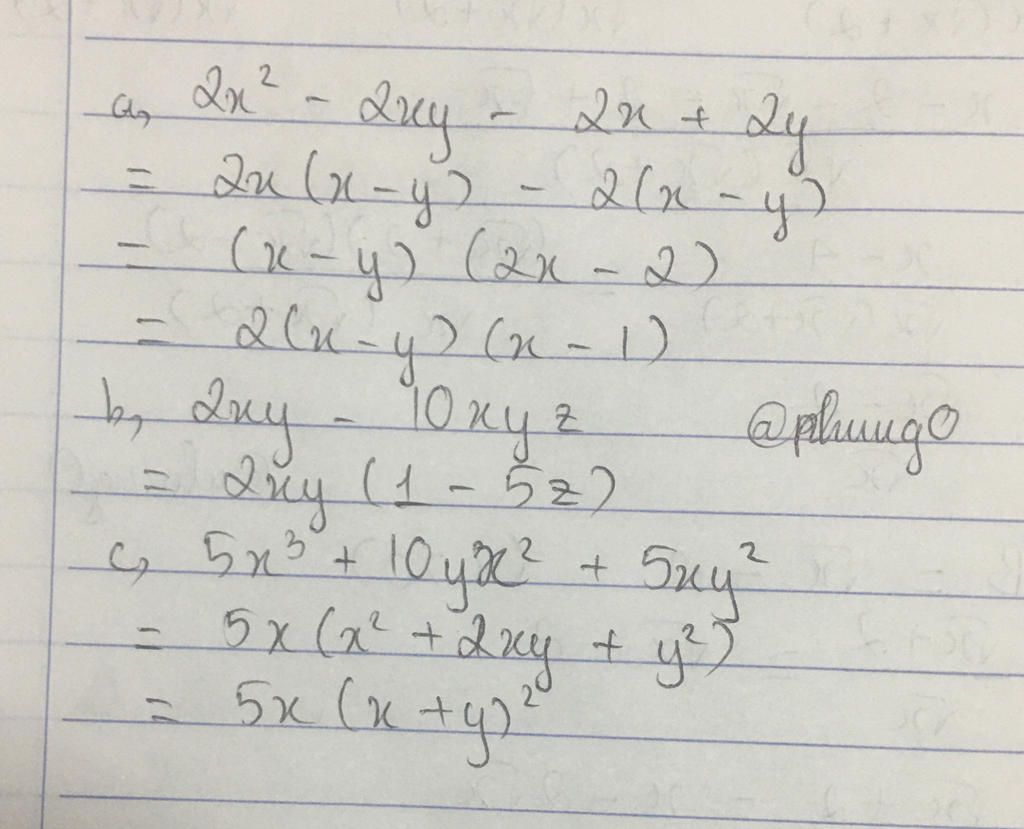 a, 2x² - 2xy - 2x + 2y
= 2x(x-y) - 2(x-y)
= (x-y) (2x-2)
= 2(x-y)(x-1)
b, 2xy - 10xyz @phung0
= 2xy (1 - 5z)
c, 5x³ + 10yx² + 5xy²
= 5x(x² + 2xy + y²)
= 5x (x+y)²